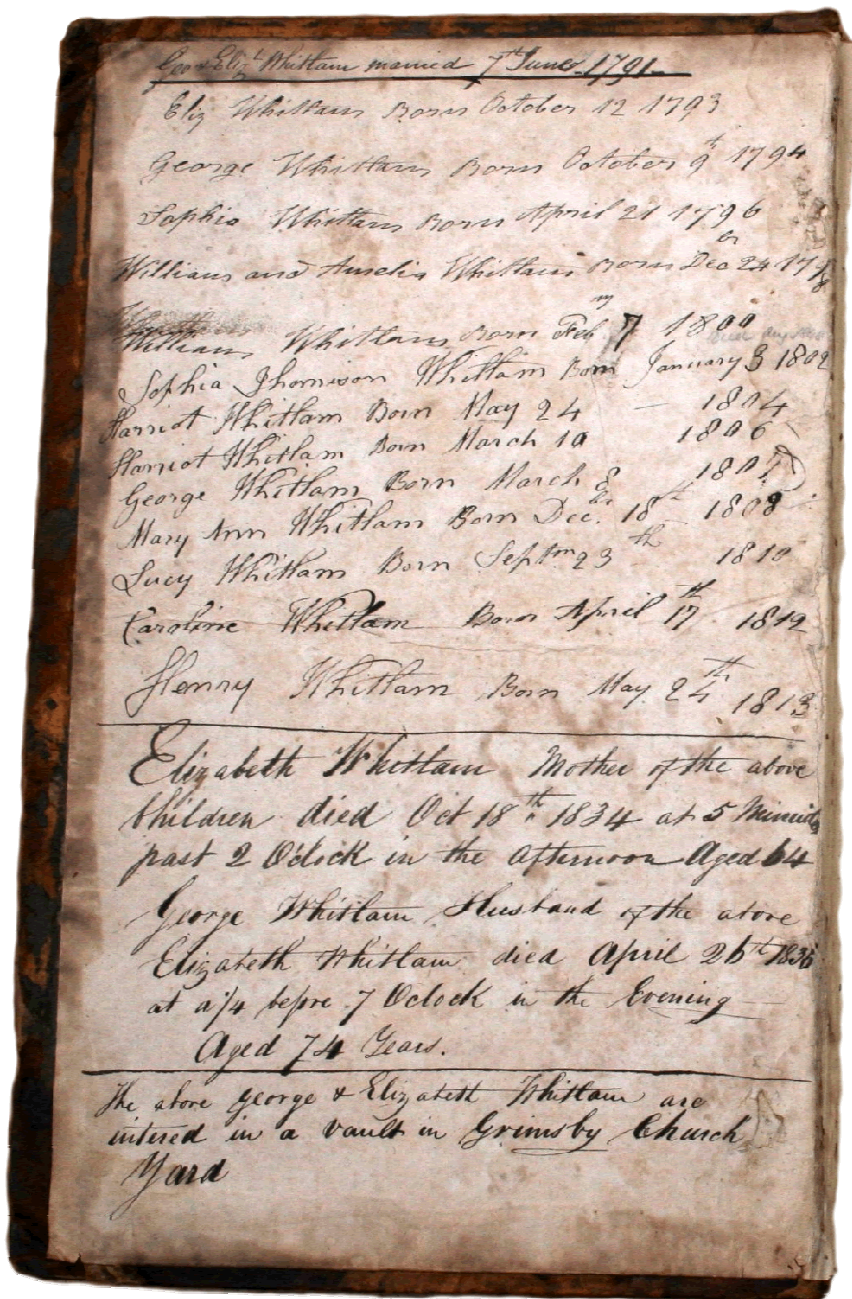 Geo & Eliz.t Whitlam married 7th June 1791
Eliz Whitlam Born October 12 1793
George Whitlam Born October 9th 1794
Sophia Whitlam Born April 21 1796
William and Amelia Whitlam Born Decbr 24 1798
William Whitlam Born Feby 7 1800
Sophia Thomison Whitlam Born January 3 1802
Harriot Whitlam Born May 24 — 1804
Harriot Whitlam Born March 10 1806
George Whitlam Born March 8 1807
Mary Ann Whitlam Born Decbr. 18th 1808
Lucy Whitlam Born Septm 23th 1810
Caroline Whitlam Born April 17th 1812
Henry Whitlam Born May 24th 1813
Elizabeth Whitlam Mother of the above
Children died Oct 18th 1834 at 5 Minuits
past 2 O'clock in the afternoon Aged 64
George Whitlam Husband of the above
Elizabeth Whitlam died April 26th 1836
at a 1/4 before 7 Oclock in the Evening
Aged 74 Years.
The above George & Elizabeth Whitlam are
intered in a vault in Grimsby Church
Yard